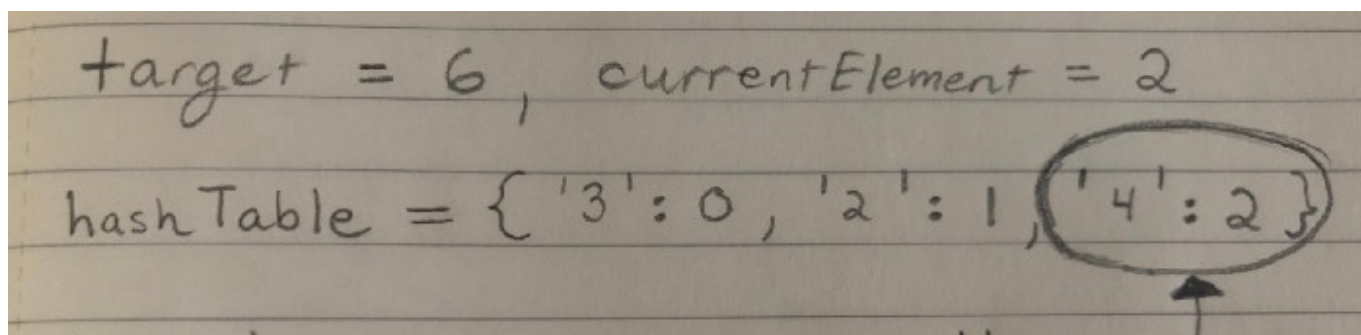 target = 6, currentElement = 2
hashTable = { '3': 0, '2': 1, '4': 2 }